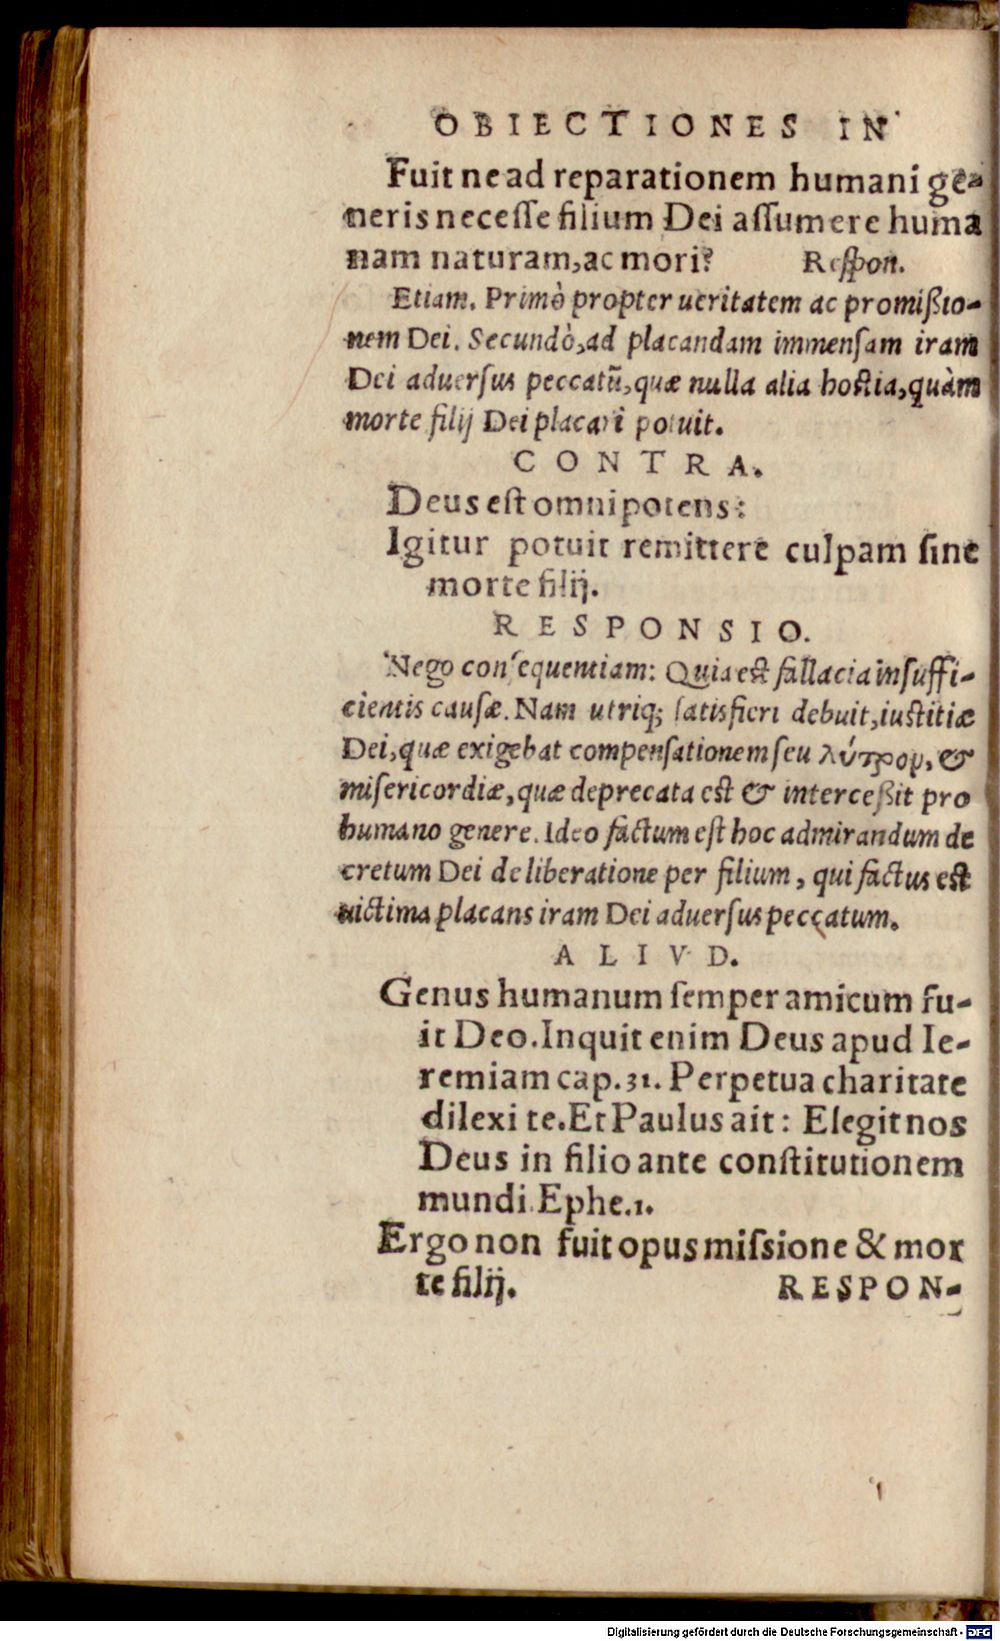 OBIECTIONES IN
Fuit ne ad reparationem humani ge-
neris necesſe filium Dei aſſumere huma
nam naturam, ac mori? Reſpon.
Etiam. Primò propter ueritatem ac promißio-
nem Dei. Secundò, ad placandam immenſam iram
Dei aduerſus peccatũ, quæ nulla alia hoſtia, quàm
morte filij Dei placari potuit.
CONTRA.
Deus eſt omnipotens:
Igitur potuit remittere culpam ſine
morte filij.
RESPONSIO.
Nego conſequentiam: Quia eſt fallacia inſuffi-
cientis cauſæ. Nam utriq; ſatisfieri debuit, iuſtitiæ
Dei, quæ exigebat compenſationem ſeu λύτρον, &
miſericordiæ, quæ deprecata eſt & interceßit pro
humano genere. Ideo factum eſt hoc admirandum de
cretum Dei de liberatione per filium, qui factus eſt
uictima placans iram Dei aduerſus peccatum.
ALIVD.
Genus humanum ſemper amicum fu-
it Deo. Inquit enim Deus apud Ie-
remiam cap. 31. Perpetua charitate
dilexi te. Et Paulus ait: Elegit nos
Deus in filio ante conſtitutionem
mundi. Ephe. 1.
Ergo non fuit opus miſsione & mor
te filij. RESPON-
Digitalisierung gefördert durch die Deutsche Forschungsgemeinschaft - DFG